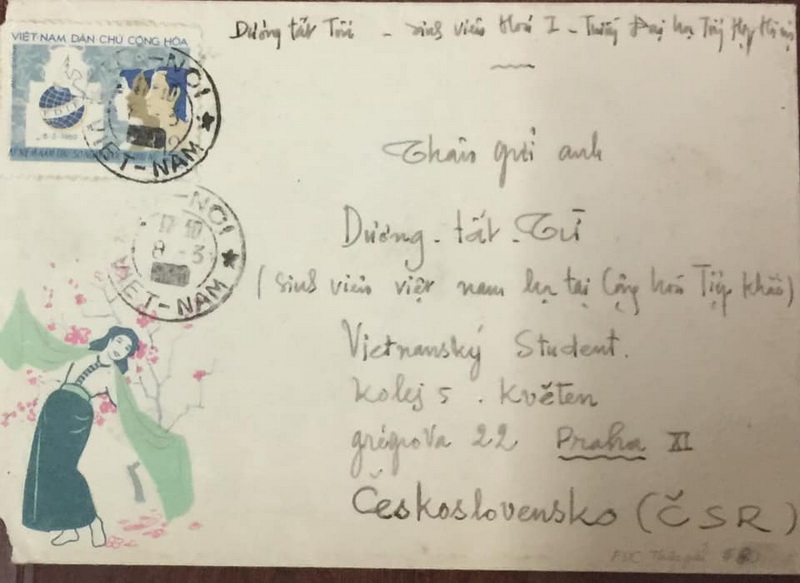 Dương tất Tài - sinh viên Hoá I - Trường Đại học Tổng Hợp Hà nội
VIỆT-NAM DÂN CHỦ CỘNG HÒA
8-3-1960
HA-NOI
VIET-NAM
HA-NOI
17-10
8 - 3
VIET-NAM
Thân gửi anh
Dương - tất - Từ
(sinh viên việt nam học tại Cộng hoà Tiệp khắc)
Vietnanský Student.
Kolej 5. Květen
grégrova 22 Praha XI
Československo (ČSR)